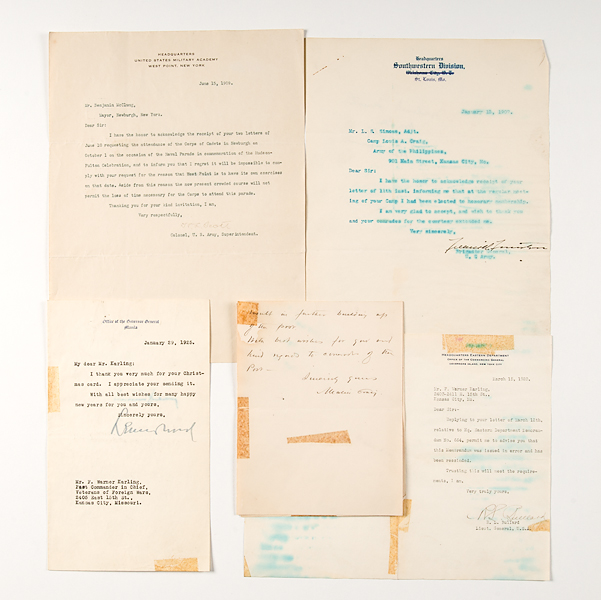 HEADQUARTERS
UNITED STATES MILITARY ACADEMY
WEST POINT, NEW YORK
June 19, 1909.
Mr. Benjamin McClung,
Mayor, Newburgh, New York.
Dear Sir:
I have the honor to acknowledge the receipt of your two letters of
June 18 requesting the attendance of the Corps of Cadets in Newburgh on
October 1 on the occasion of the Naval Parade in commemoration of the Hudson-
Fulton Celebration, and to inform you that I regret it will be impossible to com-
ply with your request for the reason that West Point is to have its own exercises
on that date. Aside from this reason the new present crowded course will not
permit the loss of time necessary for the Corps to attend this parade.
Thanking you for your kind invitation, I am,
Very respectfully,
Colonel, U. S. Army, Superintendent.
Headquarters
Southwestern Division,
Oklahoma City, O. T.
St. Louis, Mo.
January 15, 1907.
Mr. L. G. Adjt.
Camp Louis A. Craig,
Army of the Philippines,
901 Main Street, Kansas City, Mo.
Dear Sir:
I have the honor to acknowledge receipt of your
letter of 11th inst. informing me that at the regular meet-
ing of your Camp I had been elected to honorary membership.
I am very glad to accept, and wish to thank you
and your comrades for the courtesy extended me.
Very sincerely,
Frederick Funston
Brigadier General,
U. S Army.
Office of the Governor General
Manila
January 29, 1925.
My dear Mr. Karling:
I thank you very much for your Christ-
mas card. I appreciate your sending it.
With all best wishes for many happy
new years for you and yours,
Sincerely yours,
Leonard Wood
Mr. P. Warner Karling,
Past Commander in Chief,
Veterans of Foreign Wars,
2408 East 10th St.,
Kansas City, Missouri.
in further building up
of the post.
With best wishes for you and
kind regards to comrades of the
Post —
Sincerely yours
HEADQUARTERS EASTERN DEPARTMENT
OFFICE OF THE COMMANDING GENERAL
GOVERNORS ISLAND, NEW YORK CITY
March 13,
Mr. P. Warner Karling,
E. 10th St.,
Kansas City, Mo.
Dear Sir:
Replying to your Letter of March 11th,
relative to Hq. Eastern Department Memoran-
dum No. permit me to advise you that
this Memorandum was issued in error and has
been rescinded.
Trusting this will meet the require-
ments, I am,
Very truly yours,
R. L. Bullard
R. L. Bullard
Lieut. General, U.S.A.